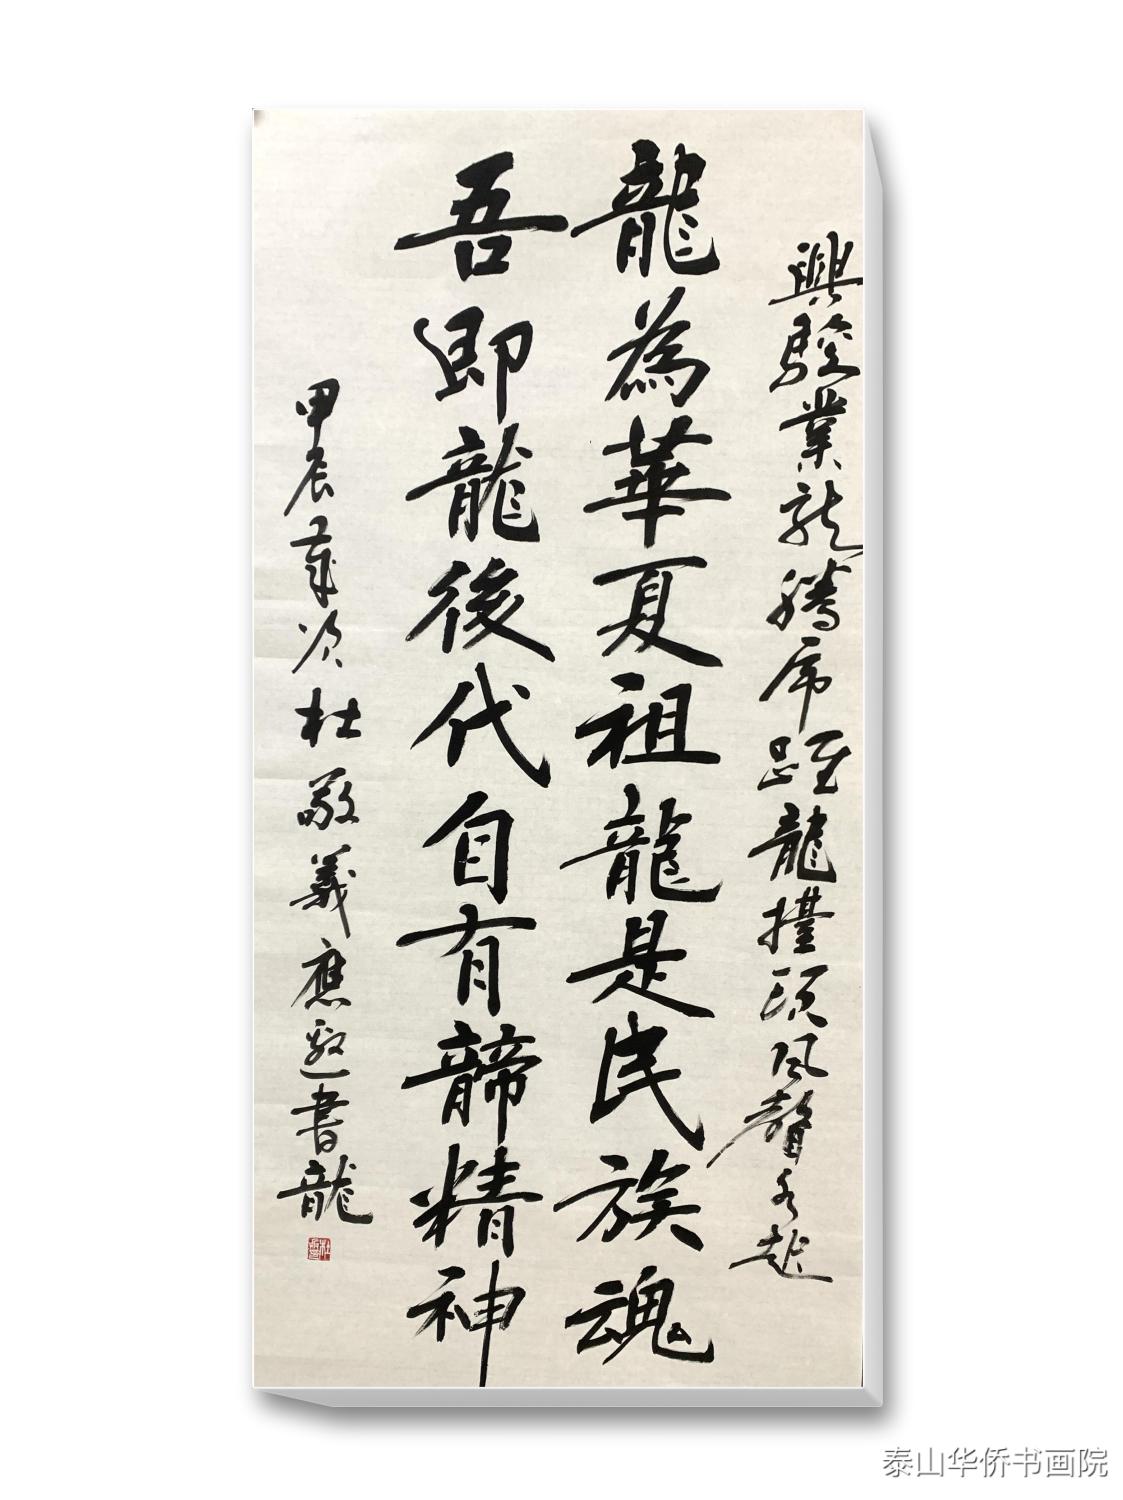 興驗業龍騰虎躍龍擡頭風聲水起
龍為華夏祖龍是民族魂
吾即龍後代自有龍精神
甲辰年次杜敬義應邀書龍
泰山华侨书画院